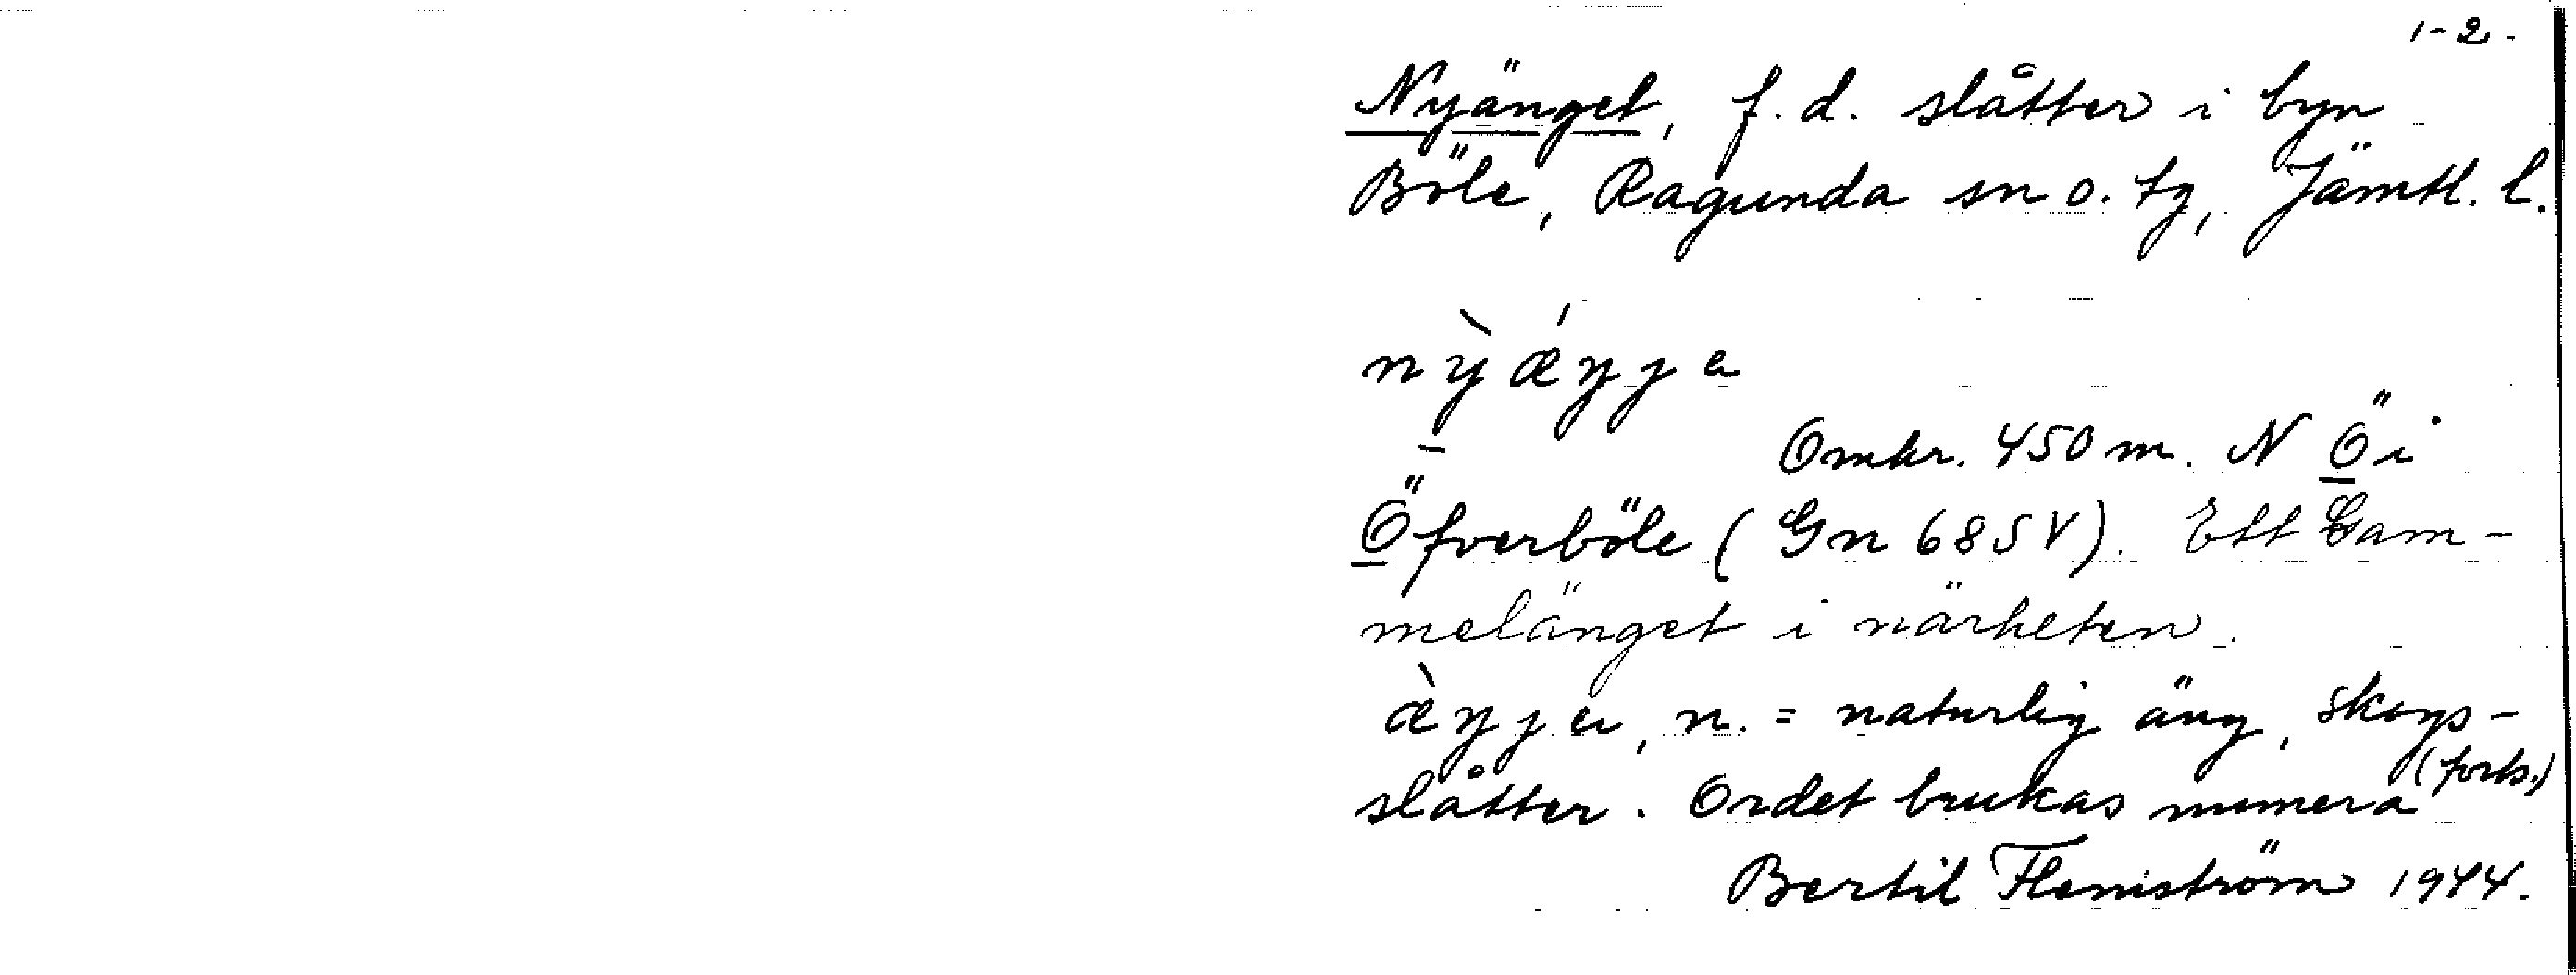 1-2.
Nyänget, f.d. slåtter i byn
Böle, Ragunda sn o. tg, Jämtl. l.
nỳǽŋje
Omkr. 450 m. N Ö i
Öfverböle (Gn 68SV). Ett Gam-
melänget i närheten.
æ̀ŋje, n. = naturlig äng, skogs-
slåtter. Ordet brukas numera (forts.)
Bertil Flemström 1944.